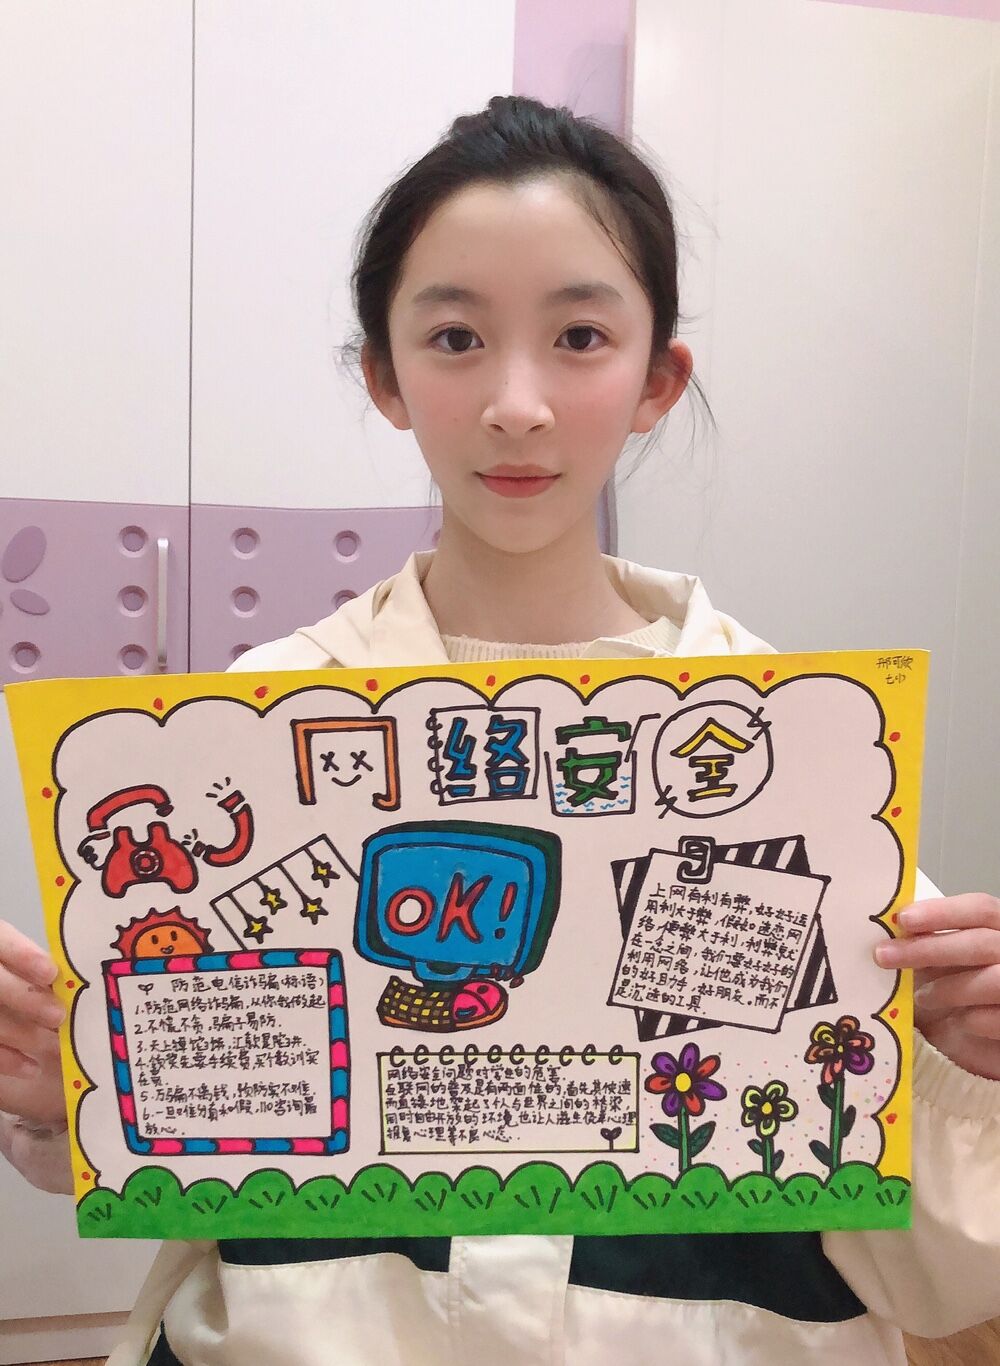 邢可欣
七(1)
网络安全
OK!
防范电信诈骗(标语)
1.防范网络诈骗,从你我做起
2.不慌不贪,骗子易防.
3.天上掉馅饼,汇款是陷阱.
4.领奖先要手续费,买个教训实
在贵.
5.万骗不离钱,预防实不难.
6.一旦难分真和假,110咨询最
放心.
上网有利有弊,好好运
用利大于弊,假如迷恋网
络,便弊大于利,利弊就
在一念之间,我们要好好的
利用网络,让他成为我们
的好助手,好朋友。而不
是沉迷的工具.
网络安全问题对学生的危害
互联网的普及是有两面性的,首先其快速
而直接地架起了个人与世界之间的桥梁,
同时自由开放的环境也让人滋生侥幸心理
报复心理等不良心态.